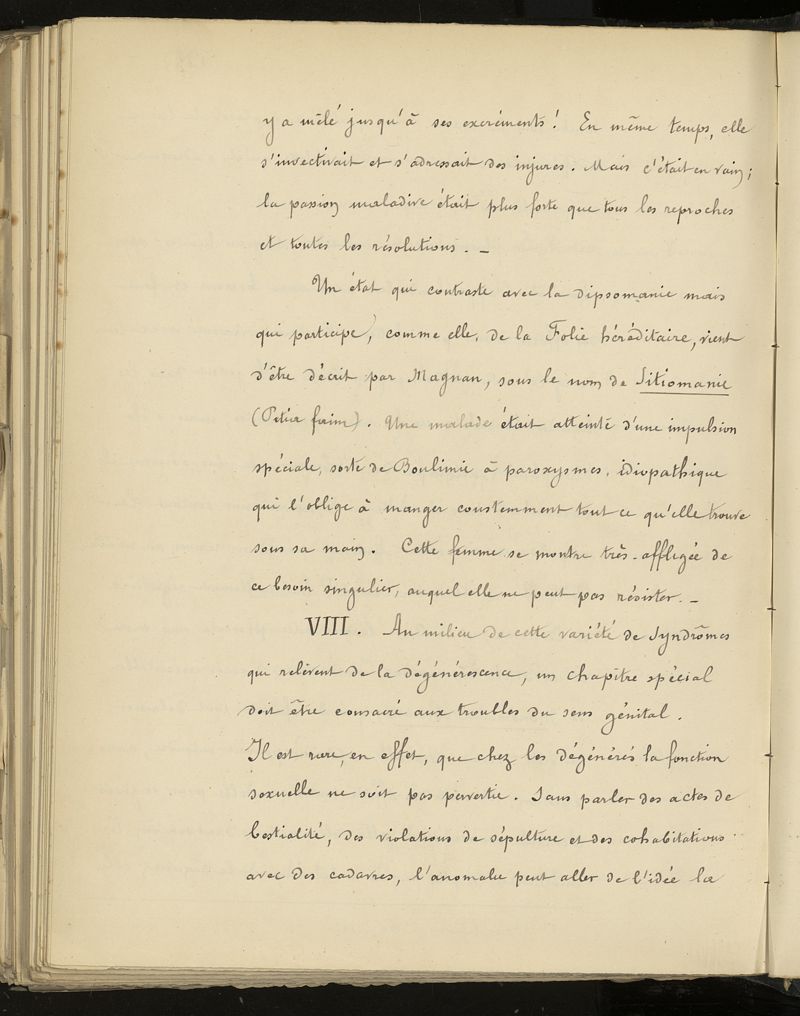 y a mêlé jusqu'à ses excréments! En même temps, elle
s'invectivait et s'adressait des injures. Mais c'était en vain;
la passion maladive était plus forte que tous les reproches
et toutes les résolutions. —
Un état qui contraste avec la dipsomanie mais
qui participe, comme elle, de la Folie héréditaire, vient
d'être décrit par Magnan, sous le nom de Sitiomanie
(         ). Une malade était atteinte d'une impulsion
spéciale, sorte de Boulimie à paroxysmes, idiopathique
qui l'oblige à manger constemment tout ce qu'elle trouve
sous sa main. Cette femme se montre très-affligée de
ce besoin singulier, auquel elle ne peut pas résister. —
VIII. Au milieu de cette variété de Syndrômes
qui relèvent de la dégénérescence, un chapitre spécial
doit être consacré aux troubles du sens génital.
Il est rare, en effet, que chez les dégénérés la fonction
sexuelle ne soit pas pervertie. Sans parler des actes de
bestialité, des violations de sépulture et des cohabitations
avec des cadavres, l'anomalie peut aller de l'idée la